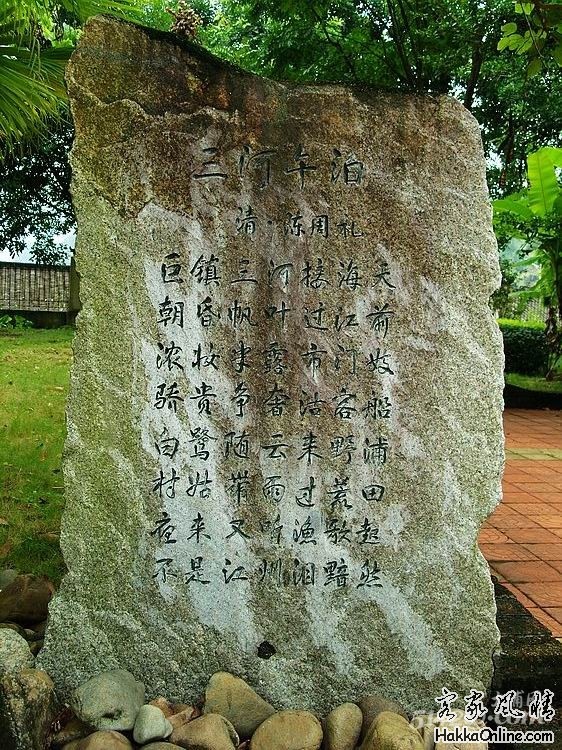 三河午泊
清·陈周礼
巨镇三河接海天
朝昏帆叶过江前
浓妆半露市汀妓
骄贵争奢沽客船
白鹭随云来野浦
村姑带雨过荒田
夜来又听渔歌起
不是江州泪黯然
客家风情
HakkaOnline.com